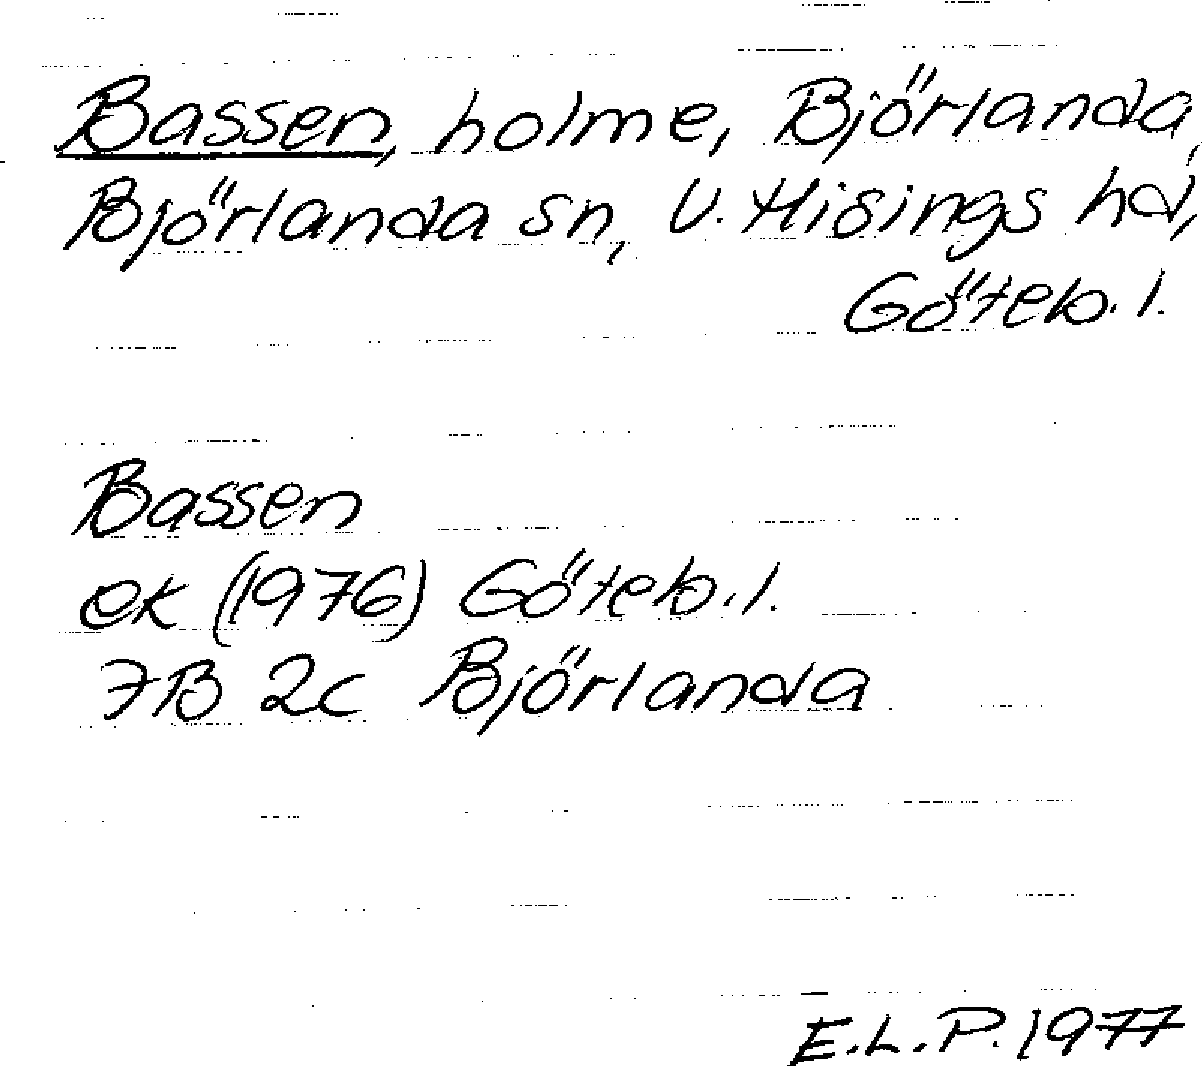 Bassen, holme, Björlanda,
Björlanda sn, V. Hisings hd,
Göteb. l.
Bassen
ek (1976) Göteb. l.
7B 2c Björlanda
E.L.P. 1977